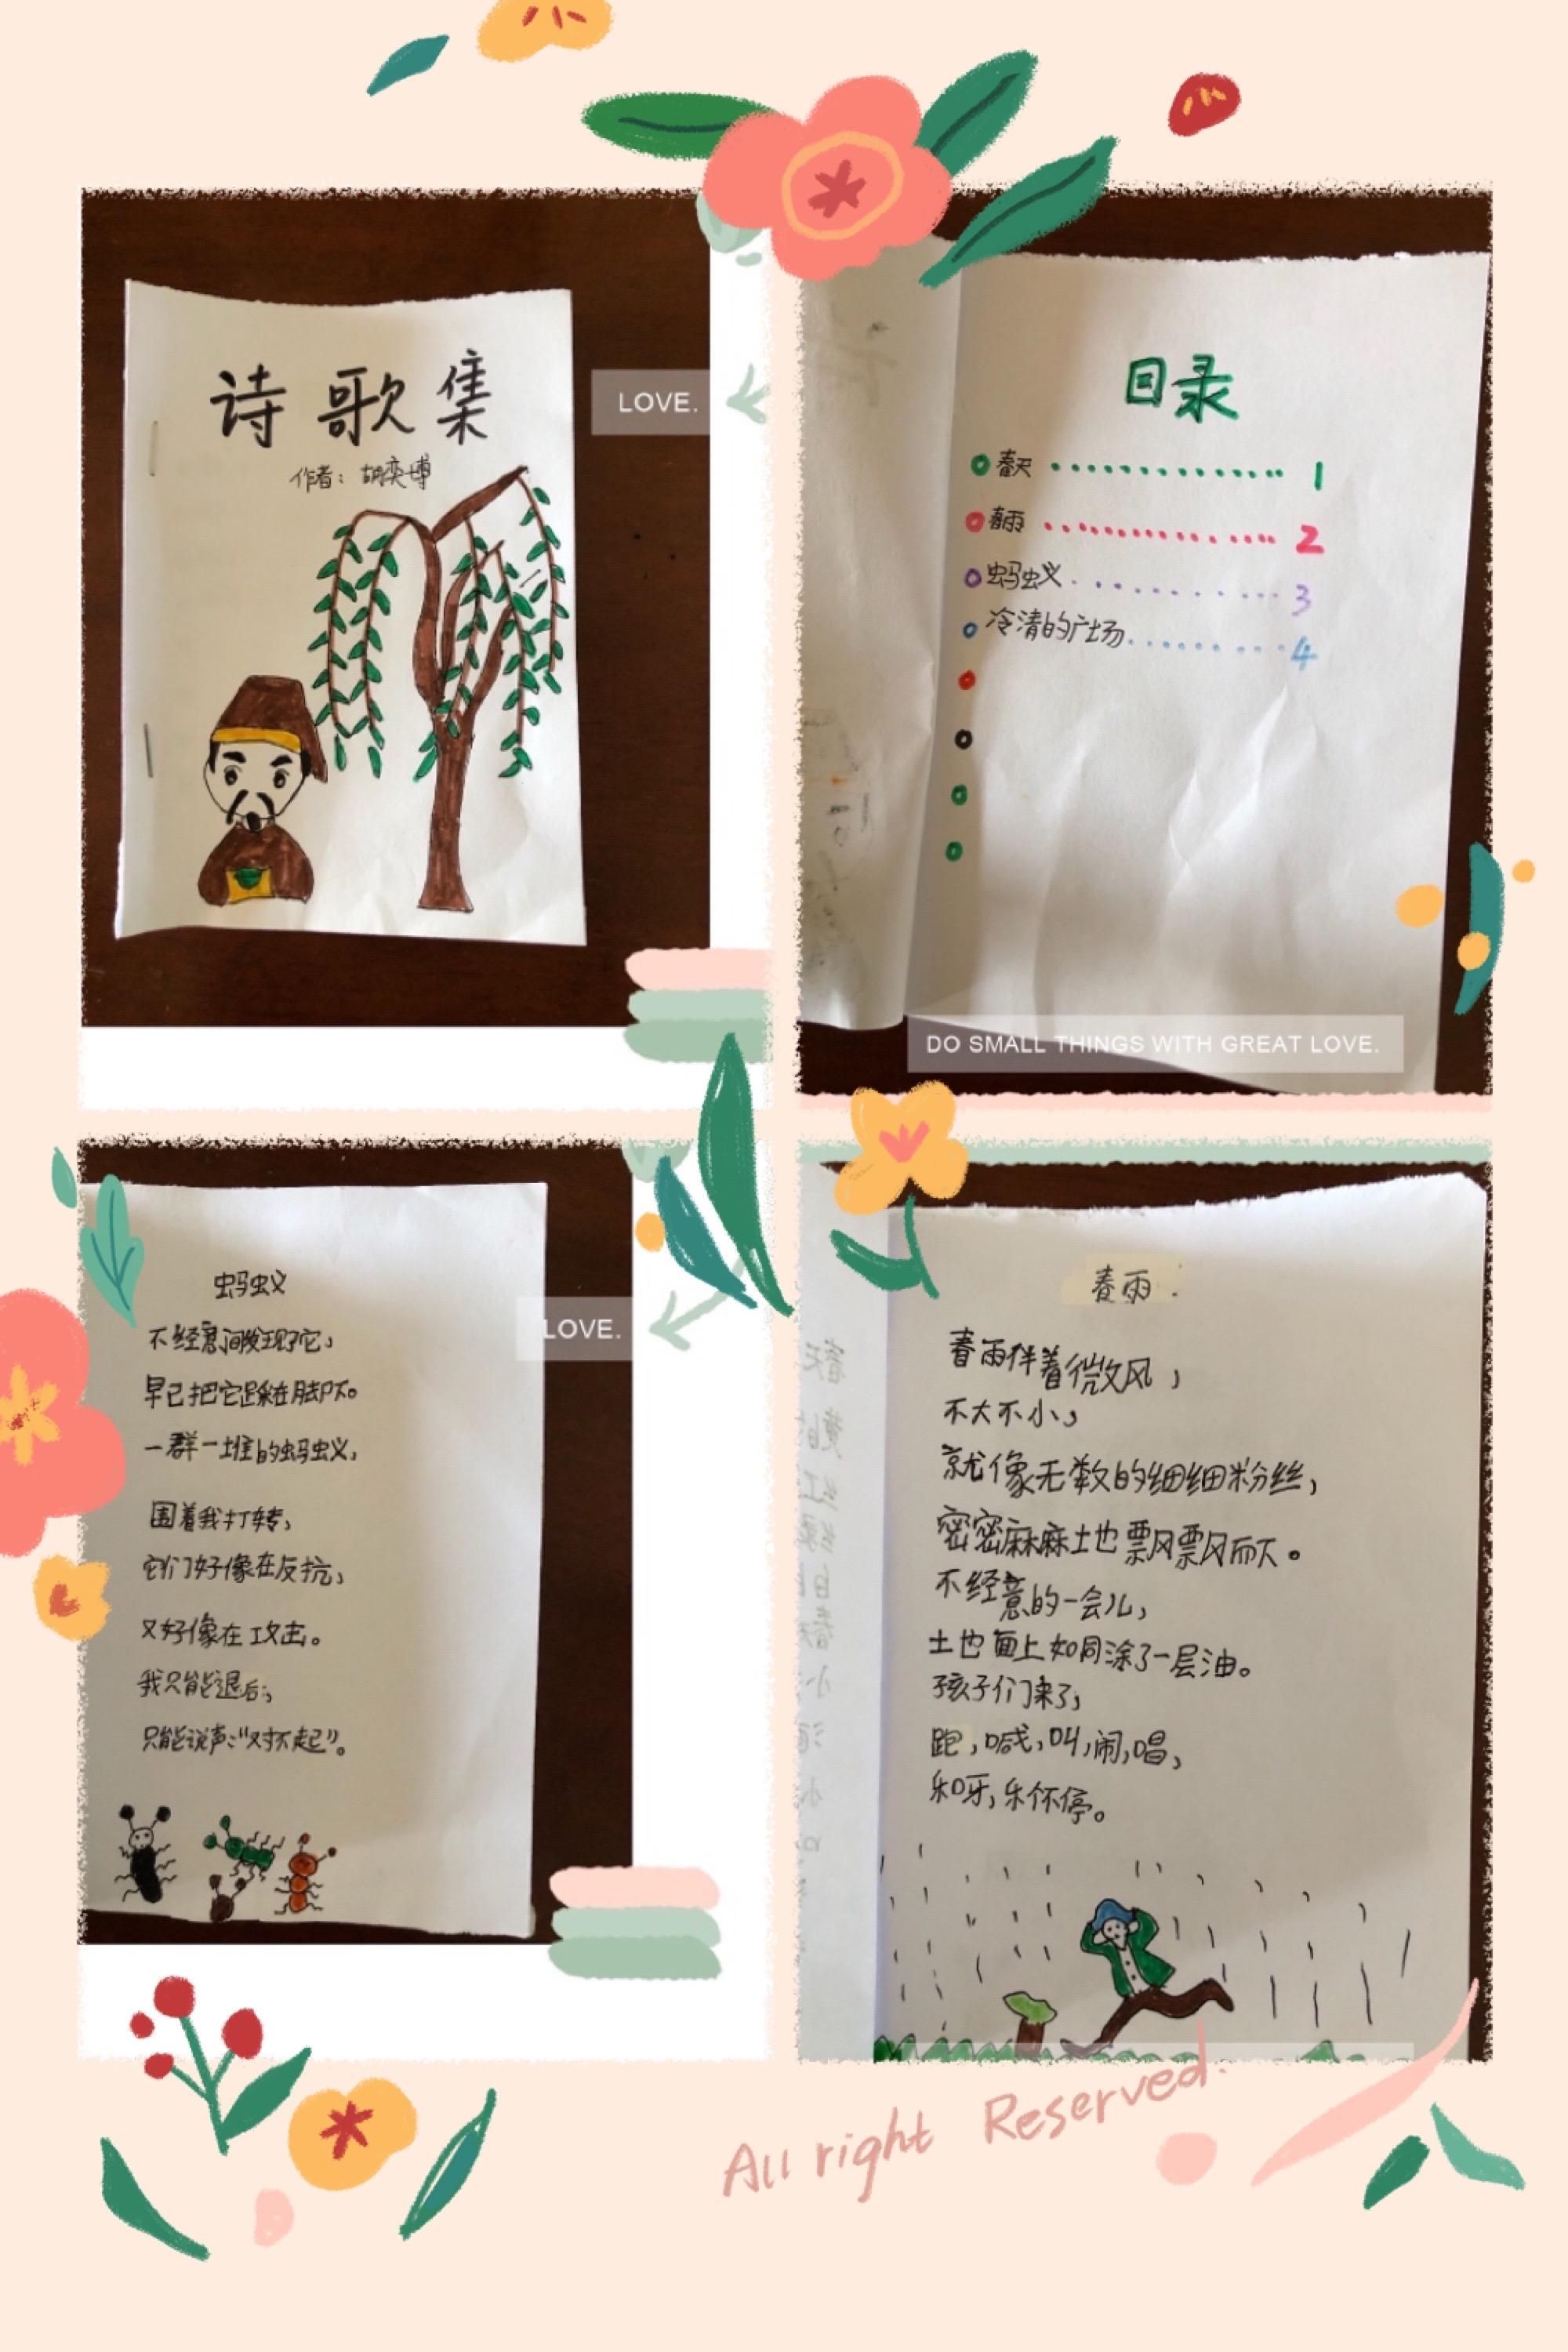 诗歌集
作者：胡奕博
LOVE.
目录
春天 1
春雨 2
蚂蚁 3
冷清的广场 4
DO SMALL THINGS WITH GREAT LOVE.
蚂蚁
不经意间发现了它，
早已把它踩在脚下。
一群一堆的蚂蚁，
围着我打转，
它们好像在反抗，
又好像在攻击。
我只能退后，
只能说声：“对不起”。
LOVE.
春雨
春雨伴着微风，
不大不小，
就像无数的细细粉丝，
密密麻麻地飘飘而下。
不经意的一会儿，
地面上如同涂了一层油。
孩子们来了，
跑，喊，叫，闹，唱，
乐呀，乐个不停。
All right Reserved.